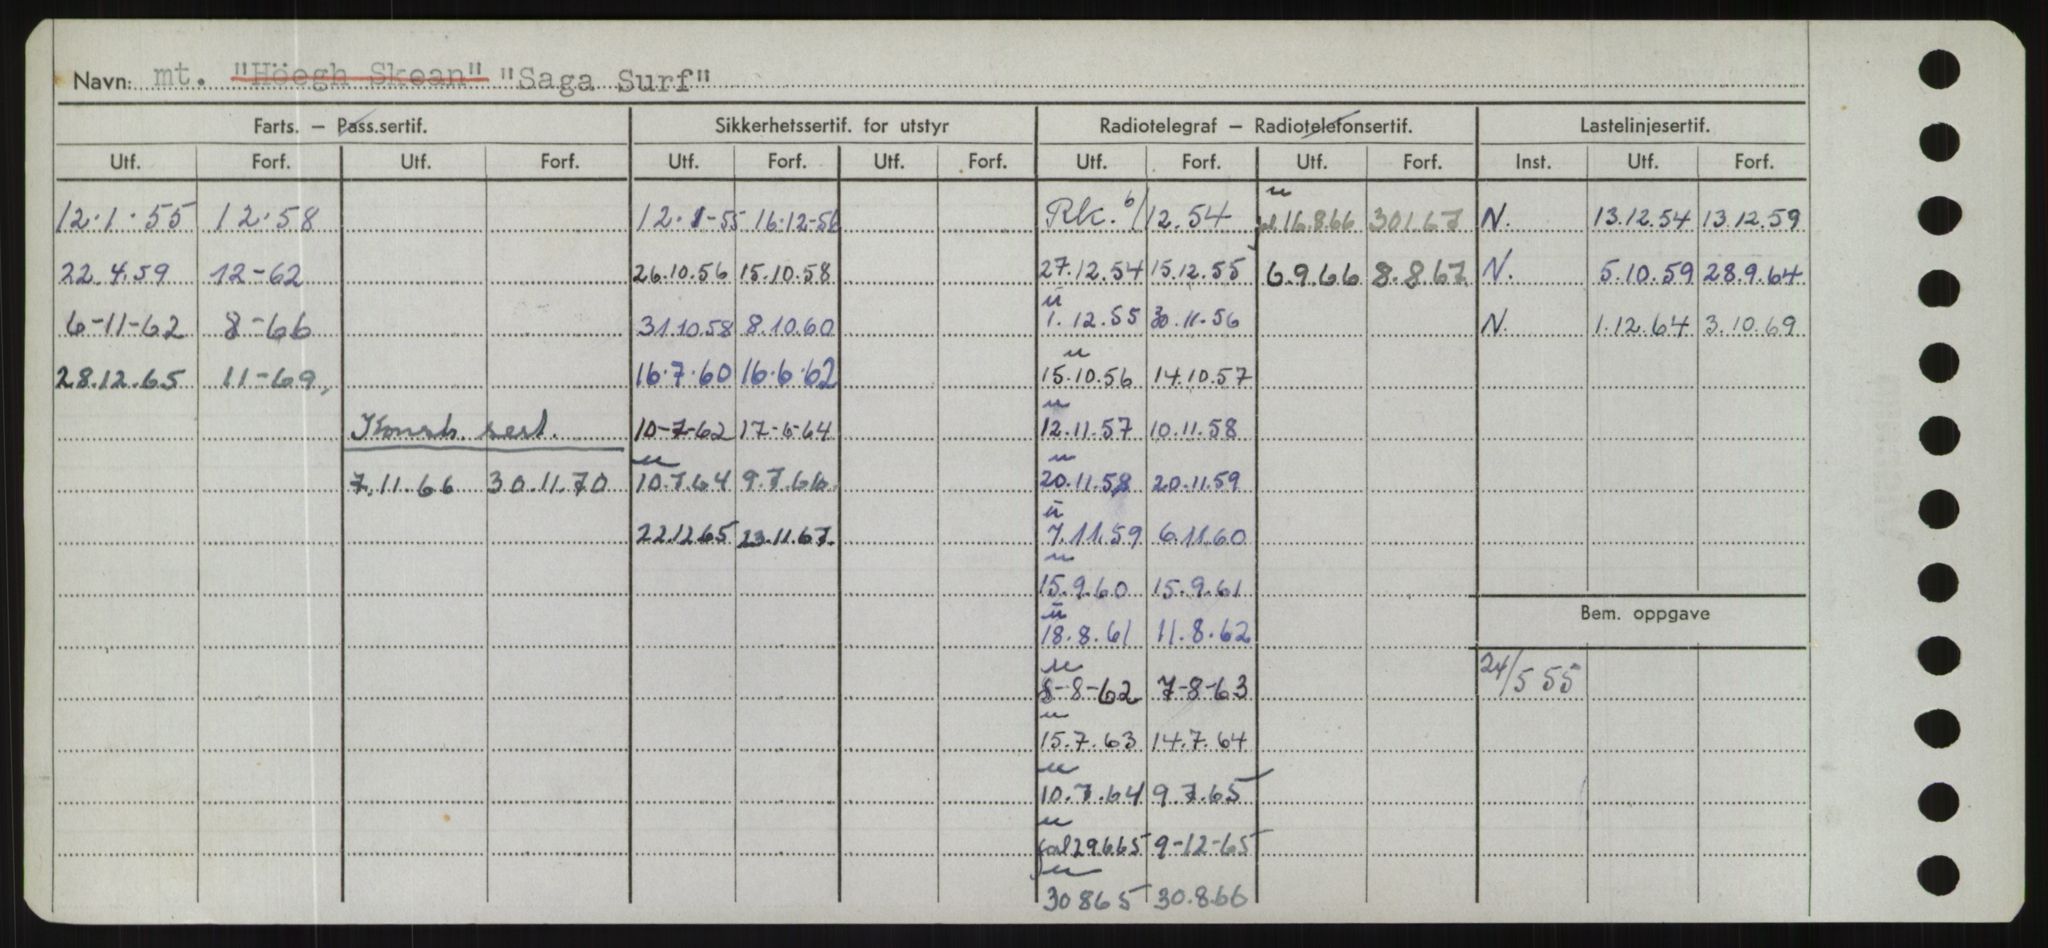 Navn: mt. "Höegh Skean" "Saga Surf"
Farts. – Pass.sertif. Sikkerhetssertif. for utstyr Radiotelegraf – Radiotelefonsertif. Lastelinjesertif.
Utf. Forf. Utf. Forf. Utf. Forf. Utf. Forf. Utf. Forf. Utf. Forf. Inst. Utf. Forf.
12.1.55 12.58 12.1-55 16.12-56 Rk. 6/12.54 16.8.66 30.1.67 N. 13.12.54 13.12.59
22.4.59 12-62 26.10.56 15.10.58 27.12.54 15.12.55 6.9.66 8.8.67 N. 5.10.59 28.9.64
6-11-62 8-66 31.10.58 8.10.60 1.12.55 30.11.56 N. 1.12.64 3.10.69
28.12.65 11-69 16.7.60 16.6.62 15.10.56 14.10.57
Konstr. sert. 10-7-62 17-6-64 12.11.57 10.11.58
7.11.66 30.11.70 10.7.64 9.7.66 20.11.58 20.11.59
22.12.65 23.11.67 7.11.59 6.11.60
15.9.60 15.9.61
Bem. oppgave
18.8.61 11.8.62
8-8-62 7-8-63 24/5 55
15.7.63 14.7.64
10.7.64 9.7.65
29.6.65 9-12-65
30 8 65 30.8.66